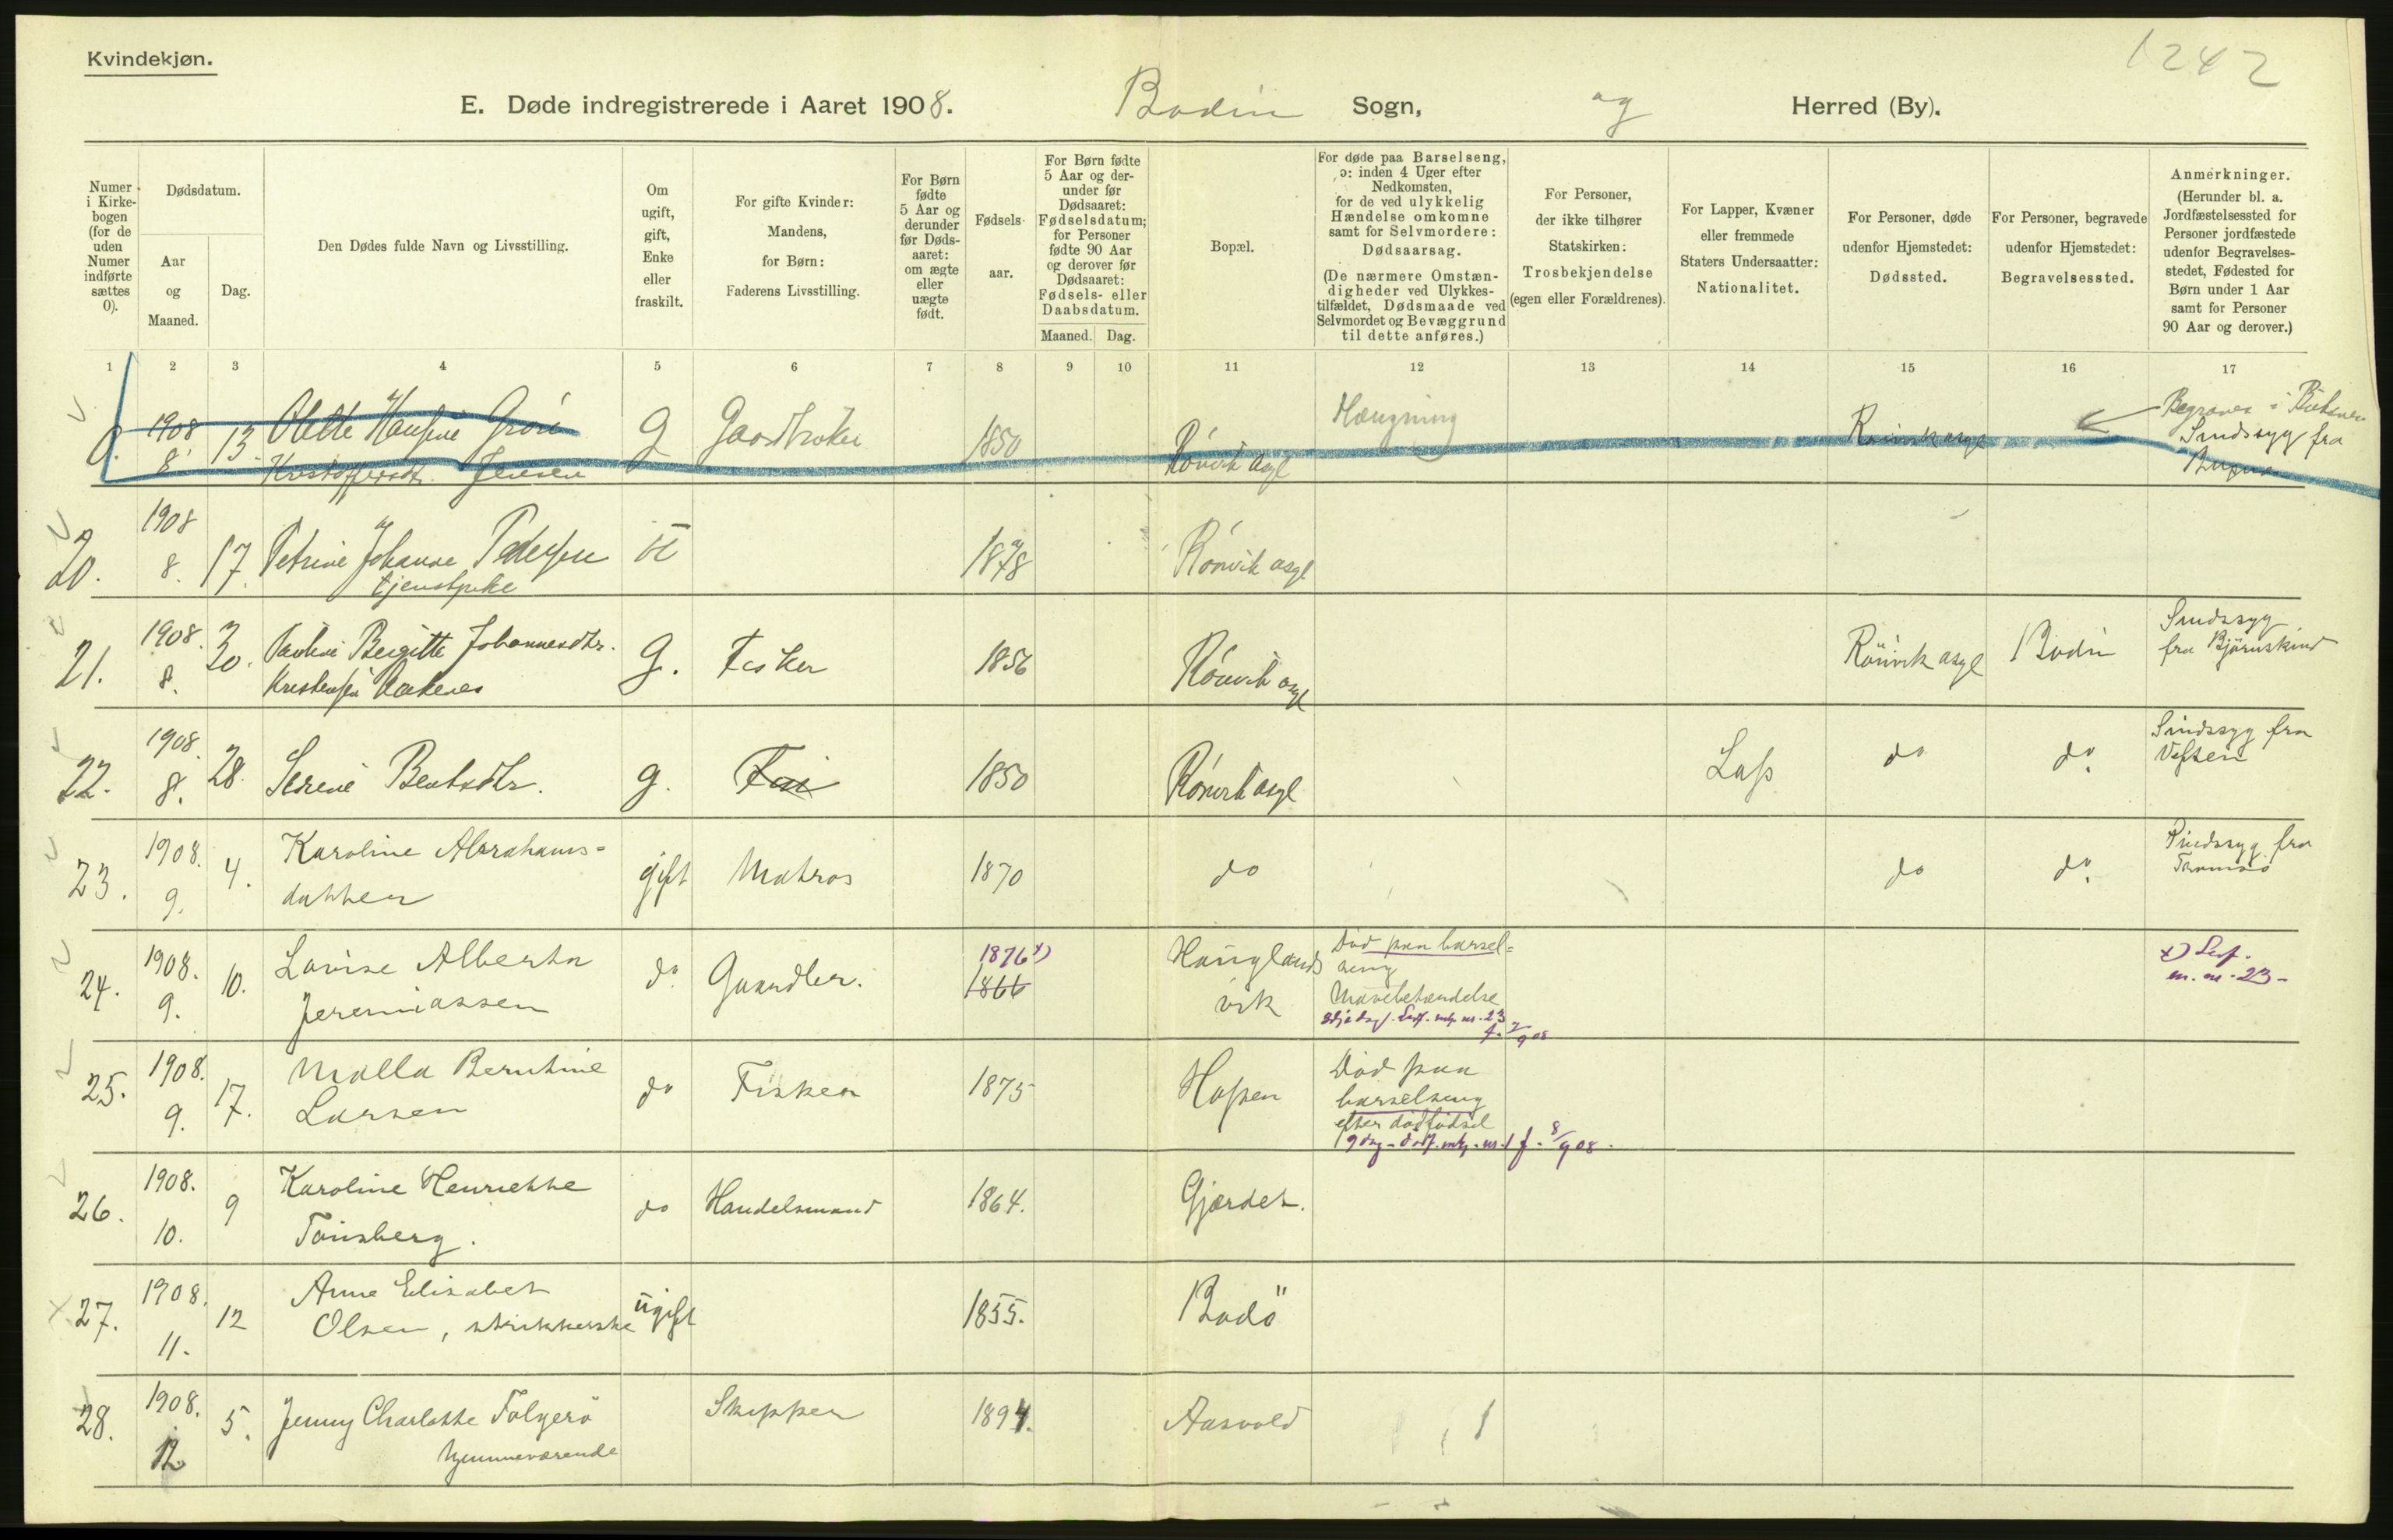 Kvindekjøn.
1242
E. Døde indregistrerede i Aaret 1908. Bodin Sogn, og Herred (By).
Numer i Kirkebogen (for de uden Numer indførte sættes 0).
Dødsdatum.
Aar og Maaned.
Dag.
Den Dødes fulde Navn og Livsstilling.
Om ugift, gift, Enke eller fraskilt.
For gifte Kvinder: Mandens, for Børn: Faderens Livsstilling.
For Børn fødte 5 Aar og derunder før Dødsaaret: om ægte eller uægte født.
Fødselsaar.
For Børn fødte 5 Aar og derunder før Dødsaaret: Fødselsdatum; for Personer fødte 90 Aar og derover før Dødsaaret: Fødsels- eller Daabsdatum.
Maaned. Dag.
Bopæl.
For døde paa Barselseng, ɔ: inden 4 Uger efter Nedkomsten, for de ved ulykkelig Hændelse omkomne samt for Selvmordere: Dødsaarsag.
(De nærmere Omstændigheder ved Ulykkestilfældet, Dødsmaade ved Selvmordet og Bevæggrund til dette anføres.)
For Personer, der ikke tilhører Statskirken: Trosbekjendelse (egen eller Forældrenes).
For Lapper, Kvæner eller fremmede Staters Undersaatter: Nationalitet.
For Personer, døde udenfor Hjemstedet: Dødssted.
For Personer, begravede udenfor Hjemstedet: Begravelsessted.
Anmerkninger.
(Herunder bl. a. Jordfæstelsessted for Personer jordfæstede udenfor Begravelsesstedet, Fødested for Børn under 1 Aar samt for Personer 90 Aar og derover.)
1 2 3 4 5 6 7 8 9 10 11 12 13 14 15 16 17
0. 1908 8. 13. Olette Hansine Grøn G Gaardbruker 1850 Rönvik asyl Hængning Rönvik asyl Begraves i
Jensen Sindssyg fra
20. 1908 8. 17. Petrine Johanne Pedersen U 1878 Rönvik asyl
tjenstpike
21. 1908. 8. 30. Pauline Bergitte Johannesdtr. G. Fisker 1856 Rönvik asyl Rönvik asyl Bodin Sindssyg
Kristensen fra Björnskind
22. 1908. 8. 28. Serene Bentsdtr. g. 1850 Rönvik asyl Lap do do. Sindssyg fra
Vefsen
23. 1908. 9. 4. Karoline Abrahams= gift Matros 1870 do do do. Sindssyg fra
datter Tromsö
24. 1908. 9. 10. Lovise Alberta do Gaardbr. 1876 x) 1866 Hauglands Död paa barsel=
Jeremiassen vik seng
x)
m. nr. 23-
25. 1908. 9. 17. Malla Berntine do Fisker 1875 Hopen Död paa
Larsen barselseng
efter dödfödsel
26. 1908. 10. 9 Karoline Henriette do Handelsmand 1864. Gjærdet.
Tönsberg.
27. 1908. 11. 12 Anne Elisabet ugift 1855. Bodö
Olsen, strikkerske
28. 1908. 12 5. Jenny Charlotte Folgerö Skipper 1894. Aasvold
hjemmeværende